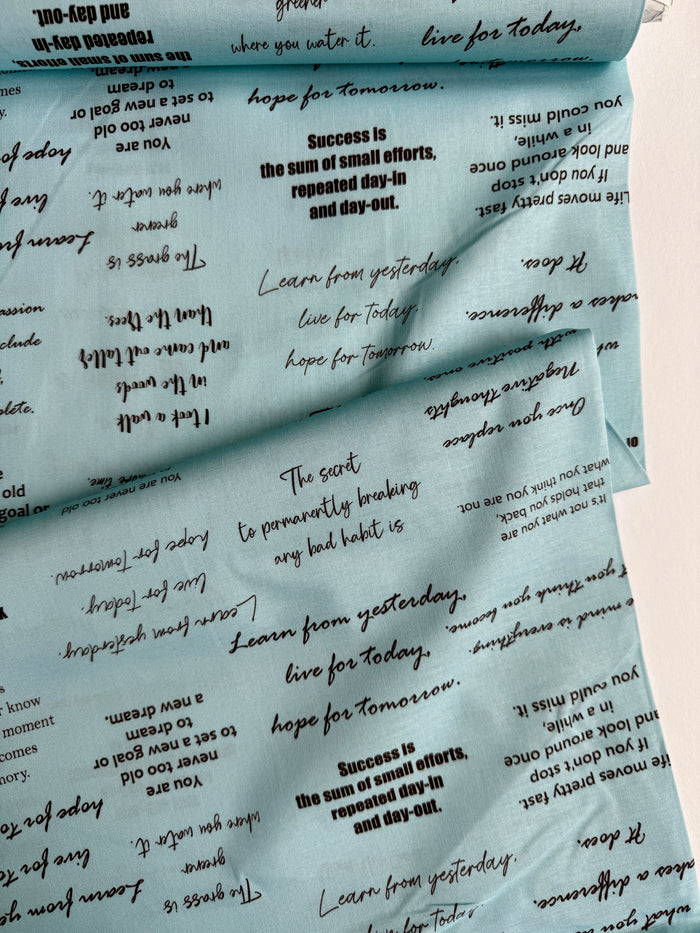 greener
where you water it.
live for today,
and day-out.
repeated day-in
the sum of small efforts,
hope for tomorrow.
a new dream.
to dream
to set a new goal or
never too old
You are
mes
y.
hope for
live for
Learn fr
where you water it.
greener
The grass is
Success is
the sum of small efforts,
repeated day-in
and day-out.
you could miss it.
in a while,
and look around once
If you don't stop
Life moves pretty fast.
Learn from yesterday,
live for today,
hope for tomorrow.
It does.
makes a difference.
assion
clude
plete.
than the trees.
and came out taller
in the woods
I took a walk
old
goal or
You are never too old
with positive ones,
Negative thoughts
Once you replace
The secret
to permanently breaking
any bad habit is
what you think you are not.
that holds you back,
It's not what you are
hope for tomorrow.
live for today,
Learn from yesterday,
Learn from yesterday,
live for today,
hope for tomorrow.
you think you become.
e mind is everything.
s
r know
moment
comes
mory.
a new dream.
to dream
to set a new goal or
never too old
You are
Success is
the sum of small efforts,
repeated day-in
and day-out.
you could miss it.
in a while,
and look around once
If you don't stop
ife moves pretty fast.
hope for to
live for to
Learn from ye
where you water it.
greener
The grass is
Learn from yesterday,
live for today,
It does.
makes a difference.
what you